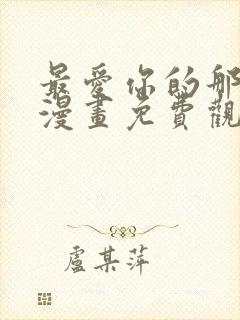 最愛你的那
漫畫免費觀
盧某萍